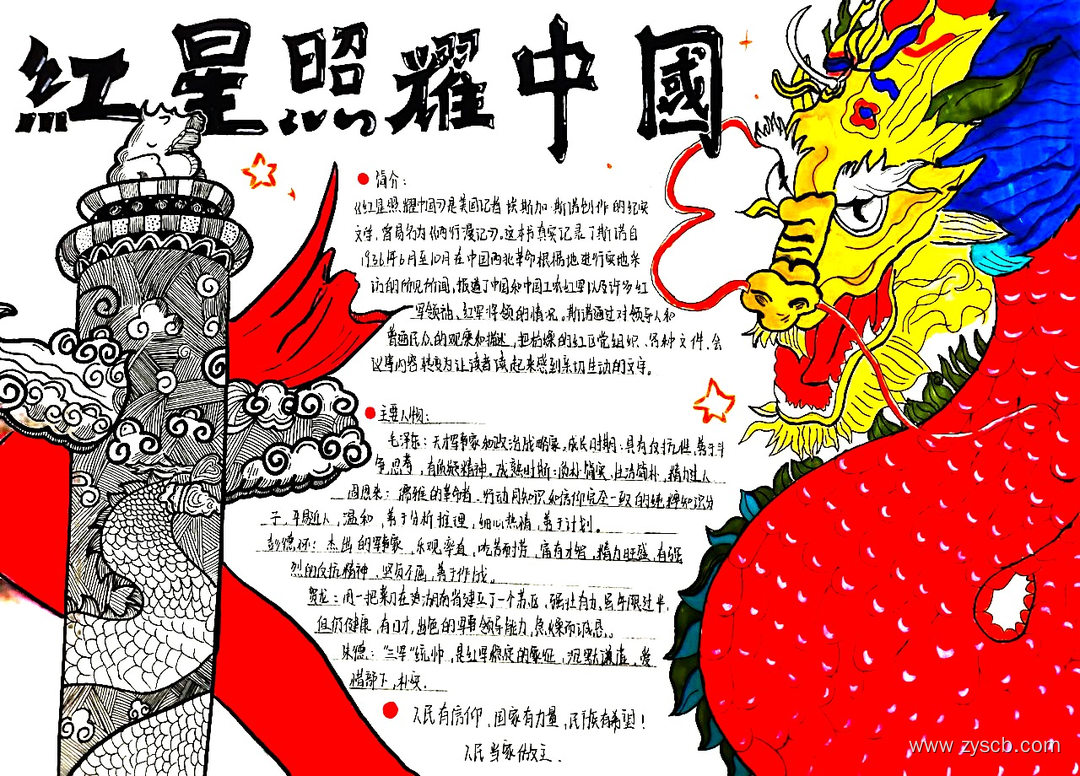 红星照耀中國
简介：
《红星照耀中国》是美国记者埃斯加·斯诺创作的纪实
文学，曾易名为《西行漫记》。这本书真实记录了斯诺自
1936年6月至10月在中国西北革命根据地进行实地采
访的所见所闻，报道了中国和中国工农红军以及许多红
军领袖、红军将领的情况。斯诺通过对领导人和
普通民众的观察和描述，把枯燥的红军党组织、各种文件、会
议等内容转为让读者读起来感到亲切生动的文字。
主要人物：
毛泽东：天才军事家和政治战略家，成长时期：具有反抗性，善于斗
争，思考，有质疑精神。成熟时期：质朴简实，生活简朴，精力过人
周恩来：儒雅的革命者，行动同知识和信仰完全一致的纯粹知识分
子，平易近人，温和，善于分析推理，细心热情，善于计划。
彭德怀：杰出的军事家，乐观，率直，吃苦耐劳，富有才智，精力旺盛，有强
烈的反抗精神，坚贞不屈，善于作战。
贺龙：用一把菜刀在湖南省建立了一个苏区，强壮有力，虽年限过半，
但仍健康，有口才，出色的军事领导能力，急燥而诚恳。
朱德："三军"统帅，是红军根底的象征，沉默谦虚，爱
惜部下，朴实．
人民有信仰、国家有力量，民族有希望！
人民当家做主．
www.zyscb.com